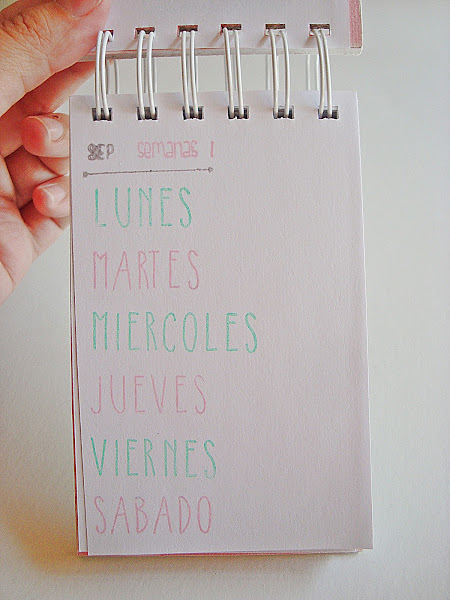 SEP semanas 1
LUNES
MARTES
MIERCOLES
JUEVES
VIERNES
SABADO